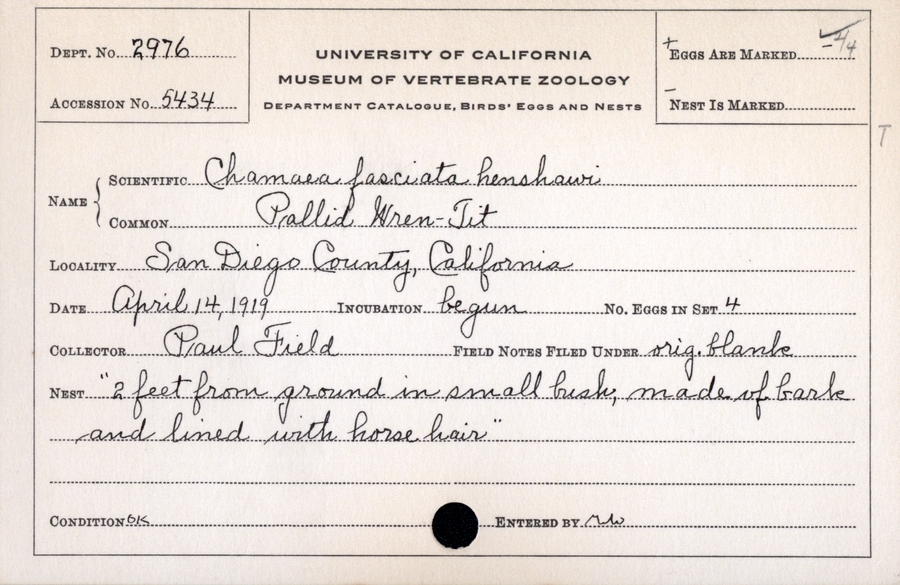 DEPT. No. 2976
ACCESSION No. 5434
UNIVERSITY OF CALIFORNIA
MUSEUM OF VERTEBRATE ZOOLOGY
DEPARTMENT CATALOGUE, BIRDS' EGGS AND NESTS
+ EGGS ARE MARKED
- NEST IS MARKED
T
NAME
SCIENTIFIC Chamaea fasciata henshawi
COMMON Pallid Wren-Tit
LOCALITY San Diego County, California
DATE April 14, 1919 INCUBATION begun NO. EGGS IN SET 4
COLLECTOR Paul Field FIELD NOTES FILED UNDER orig. blank
NEST "2 feet from ground in small bush, made of bark
and lined with horse hair"
CONDITION OK ENTERED BY